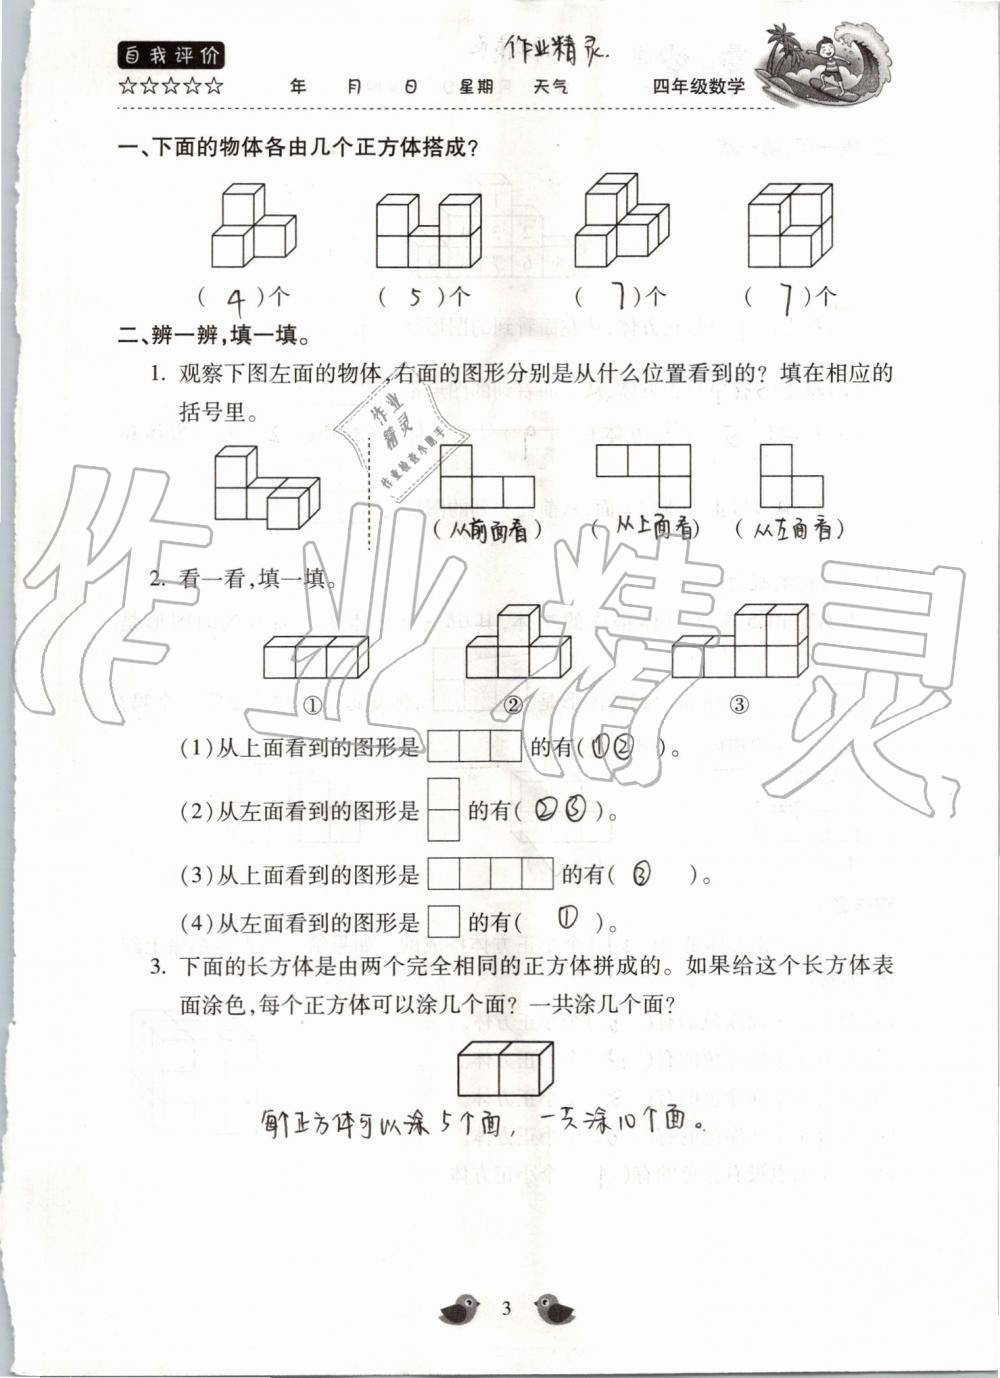 作业精灵.
自我评价
☆☆☆☆☆ 年 月 日 星期 天气 四年级数学
一、下面的物体各由几个正方体搭成？
（ 4 ）个 （ 5 ）个 （ 7 ）个 （ 7 ）个
二、辨一辨，填一填。
1. 观察下图左面的物体，右面的图形分别是从什么位置看到的？填在相应的
括号里。
作业
精灵
作业检查小助手
（从前面看） （从上面看） （从左面看）
2. 看一看，填一填。
① ② ③
(1)从上面看到的图形是 的有( ①② )。
(2)从左面看到的图形是 的有( ②③ )。
(3)从上面看到的图形是 的有( ③ )。
(4)从左面看到的图形是 的有( ① )。
3. 下面的长方体是由两个完全相同的正方体拼成的。如果给这个长方体表
面涂色，每个正方体可以涂几个面？一共涂几个面？
每个正方体可以涂5个面，一共涂10个面。
3
作业精灵